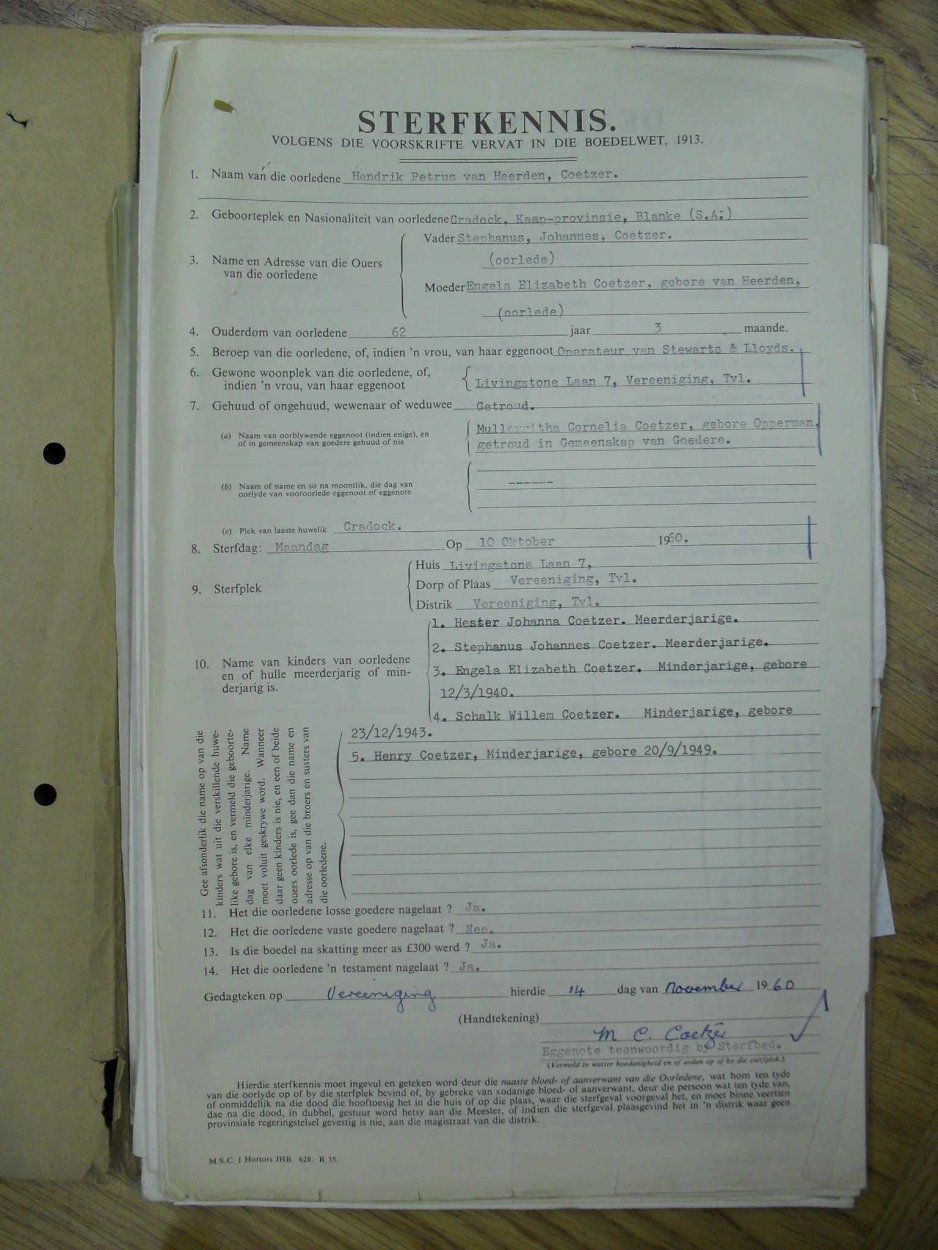 STERFKENNIS.
VOLGENS DIE VOORSKRIFTE VERVAT IN DIE BOEDELWET, 1913.
1. Naam van die oorledene Hendrik Petrus van Heerden, Coetzer.
2. Geboorteplek en Nasionaliteit van oorledene Cradock, Kaap-provinsie, Blanke (S.A;)
3. Name en Adresse van die Ouers van die oorledene
Vader Stephanus, Johannes, Coetzer.
(oorlede)
Moeder Engela Elizabeth Coetzer, gebore van Heerden,
(oorlede)
4. Ouderdom van oorledene 62 jaar 3 maande.
5. Beroep van die oorledene, of, indien 'n vrou, van haar eggenoot Operateur van Stewarts & Lloyds.
6. Gewone woonplek van die oorledene, of,
indien 'n vrou, van haar eggenoot
Livingstone Laan 7, Vereeniging, Tvl.
7. Gehuud of ongehuud, wewenaar of weduwee Getroud.
(a) Naam van oorblywende eggenoot (indien enige), en
of in gemeenskap van goedere gehuud of nie
Cornelia Coetzer, gebore Opperman,
getroud in Gemeenskap van Goedere.
(b) Naam of name en so na moontlik, die dag van
oorlyde van vooroorlede eggenoot of eggenote
------
(c) Plek van laaste huwelik Cradock.
8. Sterfdag: Maandag Op 10 Oktober 1960.
9. Sterfplek
Huis Livingstone Laan 7,
Dorp of Plaas Vereeniging, Tvl.
Distrik Vereeniging, Tvl.
10. Name van kinders van oorledene
en of hulle meerderjarig of min-
derjarig is.
1. Hester Johanna Coetzer. Meerderjarige.
2. Stephanus Johannes Coetzer. Meerderjarige.
3. Engela Elizabeth Coetzer. Minderjarige, gebore
12/3/1940.
4. Schalk Willem Coetzer. Minderjarige, gebore
23/12/1943.
5. Henry Coetzer, Minderjarige, gebore 20/9/1949.
Gee afsonderlik die name op van die
kinders wat uit die verskillende huwe-
like gebore is, en vermeld die geboorte-
dag van elke minderjarige. Name
moet voluit geskrywe word. Wanneer
daar geen kinders is nie, en een of beide
ouers oorlede is, gee dan die name en
adresse op van die broers en susters van
die oorledene.
11. Het die oorledene losse goedere nagelaat ? Ja.
12. Het die oorledene vaste goedere nagelaat ? Nee.
13. Is die boedel na skatting meer as £300 werd ? Ja.
14. Het die oorledene 'n testament nagelaat ? Ja.
Gedagteken op Vereeniging hierdie 14 dag van November 1960
(Handtekening)
M C. Coetzer
Eggenote teenwoordig by Sterfbed.
(Vermeld in watter hoedanigheid en of aldan op of by die sterfplek.)
Hierdie sterfkennis moet ingevul en geteken word deur die naaste bloed- of aanverwant van die Oorledene, wat hom ten tyde
van die oorlyde op of by die sterfplek bevind of, by gebreke van sodanige bloed- of aanverwant, deur die persoon wat ten tyde van,
of onmiddellik na die dood die hooftoesig het in die huis of op die plaas, waar die sterfgeval voorgeval het, en moet binne veertien
dae na die dood, in dubbel, gestuur word hetsy aan die Meester, of indien die sterfgeval plaasgevind het in 'n distrik waar geen
provinsiale regeringstelsel gevestig is nie, aan die magistraat van die distrik.
M.S.C. 1 Hortors JHB. 628. R 35.